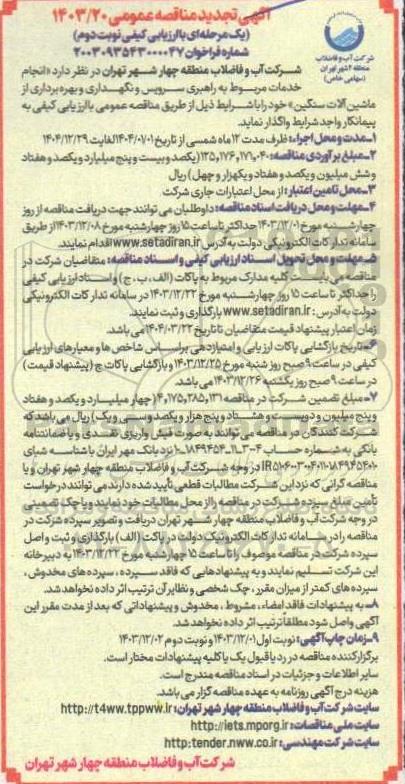 آگهی تجدید مناقصه عمومی ۱۴۰۳/۲۰
(یک مرحله‌ای با ارزیابی کیفی نوبت دوم)
شماره فراخوان ۲۰۰۳۰۹۳۵۴۳۰۰۰۰۴۷
شرکت آب و فاضلاب
منطقه ۴ شهر تهران
(سهامی خاص)
شرکت آب و فاضلاب منطقه چهار شهر تهران در نظر دارد «انجام
خدمات مربوط به راهبری سرویس و نگهداری و بهره‌برداری از
ماشین آلات سنگین» خود را با شرایط ذیل از طریق مناقصه عمومی با ارزیابی کیفی به
پیمانکار واجد شرایط واگذار نماید.
۱-مدت و محل اجراء: ظرف مدت ۱۲ ماه شمسی از تاریخ ۱۴۰۴/۰۷/۰۱ لغایت ۱۴۰۴/۱۲/۲۹
۲-مبلغ برآوردی مناقصه: ۱۲۵,۱۷۶,۱۷۱,۰۴۰ (یکصد و بیست و پنج میلیارد و یکصد و هفتاد
و شش میلیون و یکصد و هفتاد و یکهزار و چهل) ریال
۳-محل تامین اعتبار: از محل اعتبارات جاری شرکت
۴-مهلت و محل دریافت اسناد مناقصه: داوطلبان می توانند جهت دریافت مناقصه از روز
چهارشنبه مورخ ۱۴۰۳/۱۲/۰۱ حداکثر تا ساعت ۱۵ روز چهارشنبه مورخ ۱۴۰۳/۱۲/۰۸ از طریق
سامانه تدارکات الکترونیکی دولت به آدرس www.setadiran.ir اقدام نمایند.
۵-مهلت و محل تحویل اسناد ارزیابی کیفی و اسناد مناقصه: متقاضیان شرکت در
مناقصه می بایست کلیه مدارک مربوط به پاکات (الف، ب، ج) و اسناد ارزیابی کیفی
را حداکثر تا ساعت ۱۵ روز چهارشنبه مورخ ۱۴۰۳/۱۲/۲۲ در سامانه تدارکات الکترونیکی
دولت به آدرس: www.setadiran.ir بارگذاری و ثبت نمایند.
زمان اعتبار پیشنهاد قیمت متقاضیان تا تاریخ ۱۴۰۴/۰۳/۲۲ می باشد.
۶-تاریخ بازگشایی پاکات ارزیابی و امتیازدهی براساس شاخص ها و معیارهای ارزیابی
کیفی در ساعت ۹ صبح روز شنبه مورخ ۱۴۰۳/۱۲/۲۵ و بازگشایی پاکات ج (پیشنهاد قیمت)
در ساعت ۹ صبح روز یکشنبه ۱۴۰۳/۱۲/۲۶ می باشد.
۷-مبلغ تضمین شرکت در مناقصه ۴,۱۷۵,۲۸۵,۱۳۱ (چهار میلیارد و یکصد و هفتاد
و پنج میلیون و دویست و هشتاد و پنج هزار و یکصد و سی و یک) ریال می باشد که
شرکت کنندگان در مناقصه می توانند به صورت فیش واریزی نقدی و یا ضمانتنامه
بانکی به شماره حساب نزد بانک مهر ایران با شناسه شبای
در وجه شرکت آب و فاضلاب منطقه چهار شهر تهران و یا
مناقصه گرانی که نزد این شرکت مطالبات قطعی تأیید شده دارند می توانند درخواست
تأمین مبلغ سپرده شرکت در مناقصه را از محل مطالبات خود نمایند و یا چک تضمینی
در وجه شرکت آب و فاضلاب منطقه چهار شهر تهران دریافت و تصویر سپرده شرکت در
مناقصه را در سامانه تدارکات الکترونیک دولت در پاکت (الف) بارگذاری و ثبت و اصل
سپرده شرکت در مناقصه موصوف را تا ساعت ۱۵ چهارشنبه مورخ ۱۴۰۳/۱۲/۲۲ به دبیرخانه
این شرکت تسلیم نمایند و به پیشنهادهایی که فاقد سپرده، سپرده های مخدوش،
سپرده های کمتر از میزان مقرر، چک شخصی و نظایر آن ترتیب اثر داده نخواهد شد.
۸-به پیشنهادات فاقد امضاء، مشروط، مخدوش و پیشنهاداتی که بعد از مدت مقرر این
آگهی واصل شود مطلقاً ترتیب اثر داده نخواهد شد.
۹-زمان چاپ آگهی: نوبت اول ۱۴۰۳/۱۲/۰۱ و نوبت دوم ۱۴۰۳/۱۲/۰۲
برگزارکننده مناقصه در رد یا قبول یک یا کلیه پیشنهادات مختار است.
سایر اطلاعات و جزئیات در اسناد مناقصه مندرج است.
هزینه درج آگهی روزنامه به عهده مناقصه گزار می باشد.
سایت شرکت آب و فاضلاب منطقه چهار شهر تهران: http://t4ww.tppww.ir
سایت ملی مناقصات: http://iets.mporg.ir
سایت شرکت مهندسی: http:tender.nww.co.ir
شرکت آب و فاضلاب منطقه چهار شهر تهران